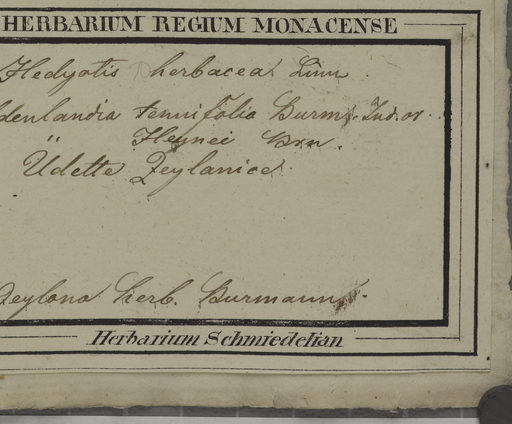 HERBARIUM REGIUM MONACENSE
Hedyotis herbacea Linn.
denlandia tenuifolia Burm. Ind. or.
" Heynei Brn.
Udette Zeylanice.
Zeylona herb. Burmann
Herbarium Schmiedelian